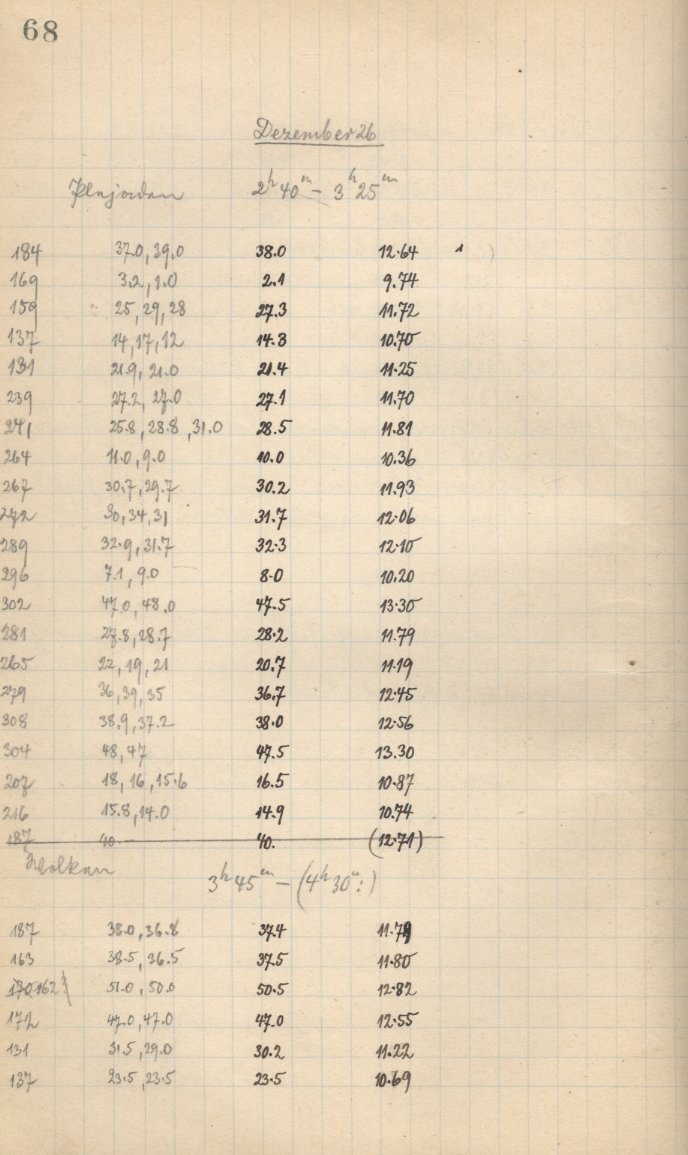 68
Dezember 26
Plejaden 2h 40m – 3h 25m
184 37.0, 39.0 38.0 12.64 1
169 3.2, 1.0 2.1 9.74
159 25, 29, 28 27.3 11.72
137 14, 17, 12 14.3 10.70
131 21.9, 21.0 21.4 11.25
239 27.2, 27.0 27.1 11.70
241 25.8, 28.8, 31.0 28.5 11.81
264 11.0, 9.0 10.0 10.36
267 30.7, 29.7 30.2 11.93
272 30, 34, 31 31.7 12.06
289 32.9, 31.7 32.3 12.10
296 7.1, 9.0 8.0 10.20
302 47.0, 48.0 47.5 13.30
281 27.8, 28.7 28.2 11.79
265 22, 19, 21 20.7 11.19
279 36, 39, 35 36.7 12.45
308 38.9, 37.2 38.0 12.56
304 48, 47 47.5 13.30
207 18, 16, 15.6 16.5 10.87
216 15.8, 14.0 14.9 10.74
187 40 40. (12.71)
Wolken
3h 45m – (4h 30m:)
187 38.0, 36.8 37.4 11.79
163 38.5, 36.5 37.5 11.80
170 162 51.0, 50.0 50.5 12.82
172 47.0, 47.0 47.0 12.55
131 31.5, 29.0 30.2 11.22
137 23.5, 23.5 23.5 10.69